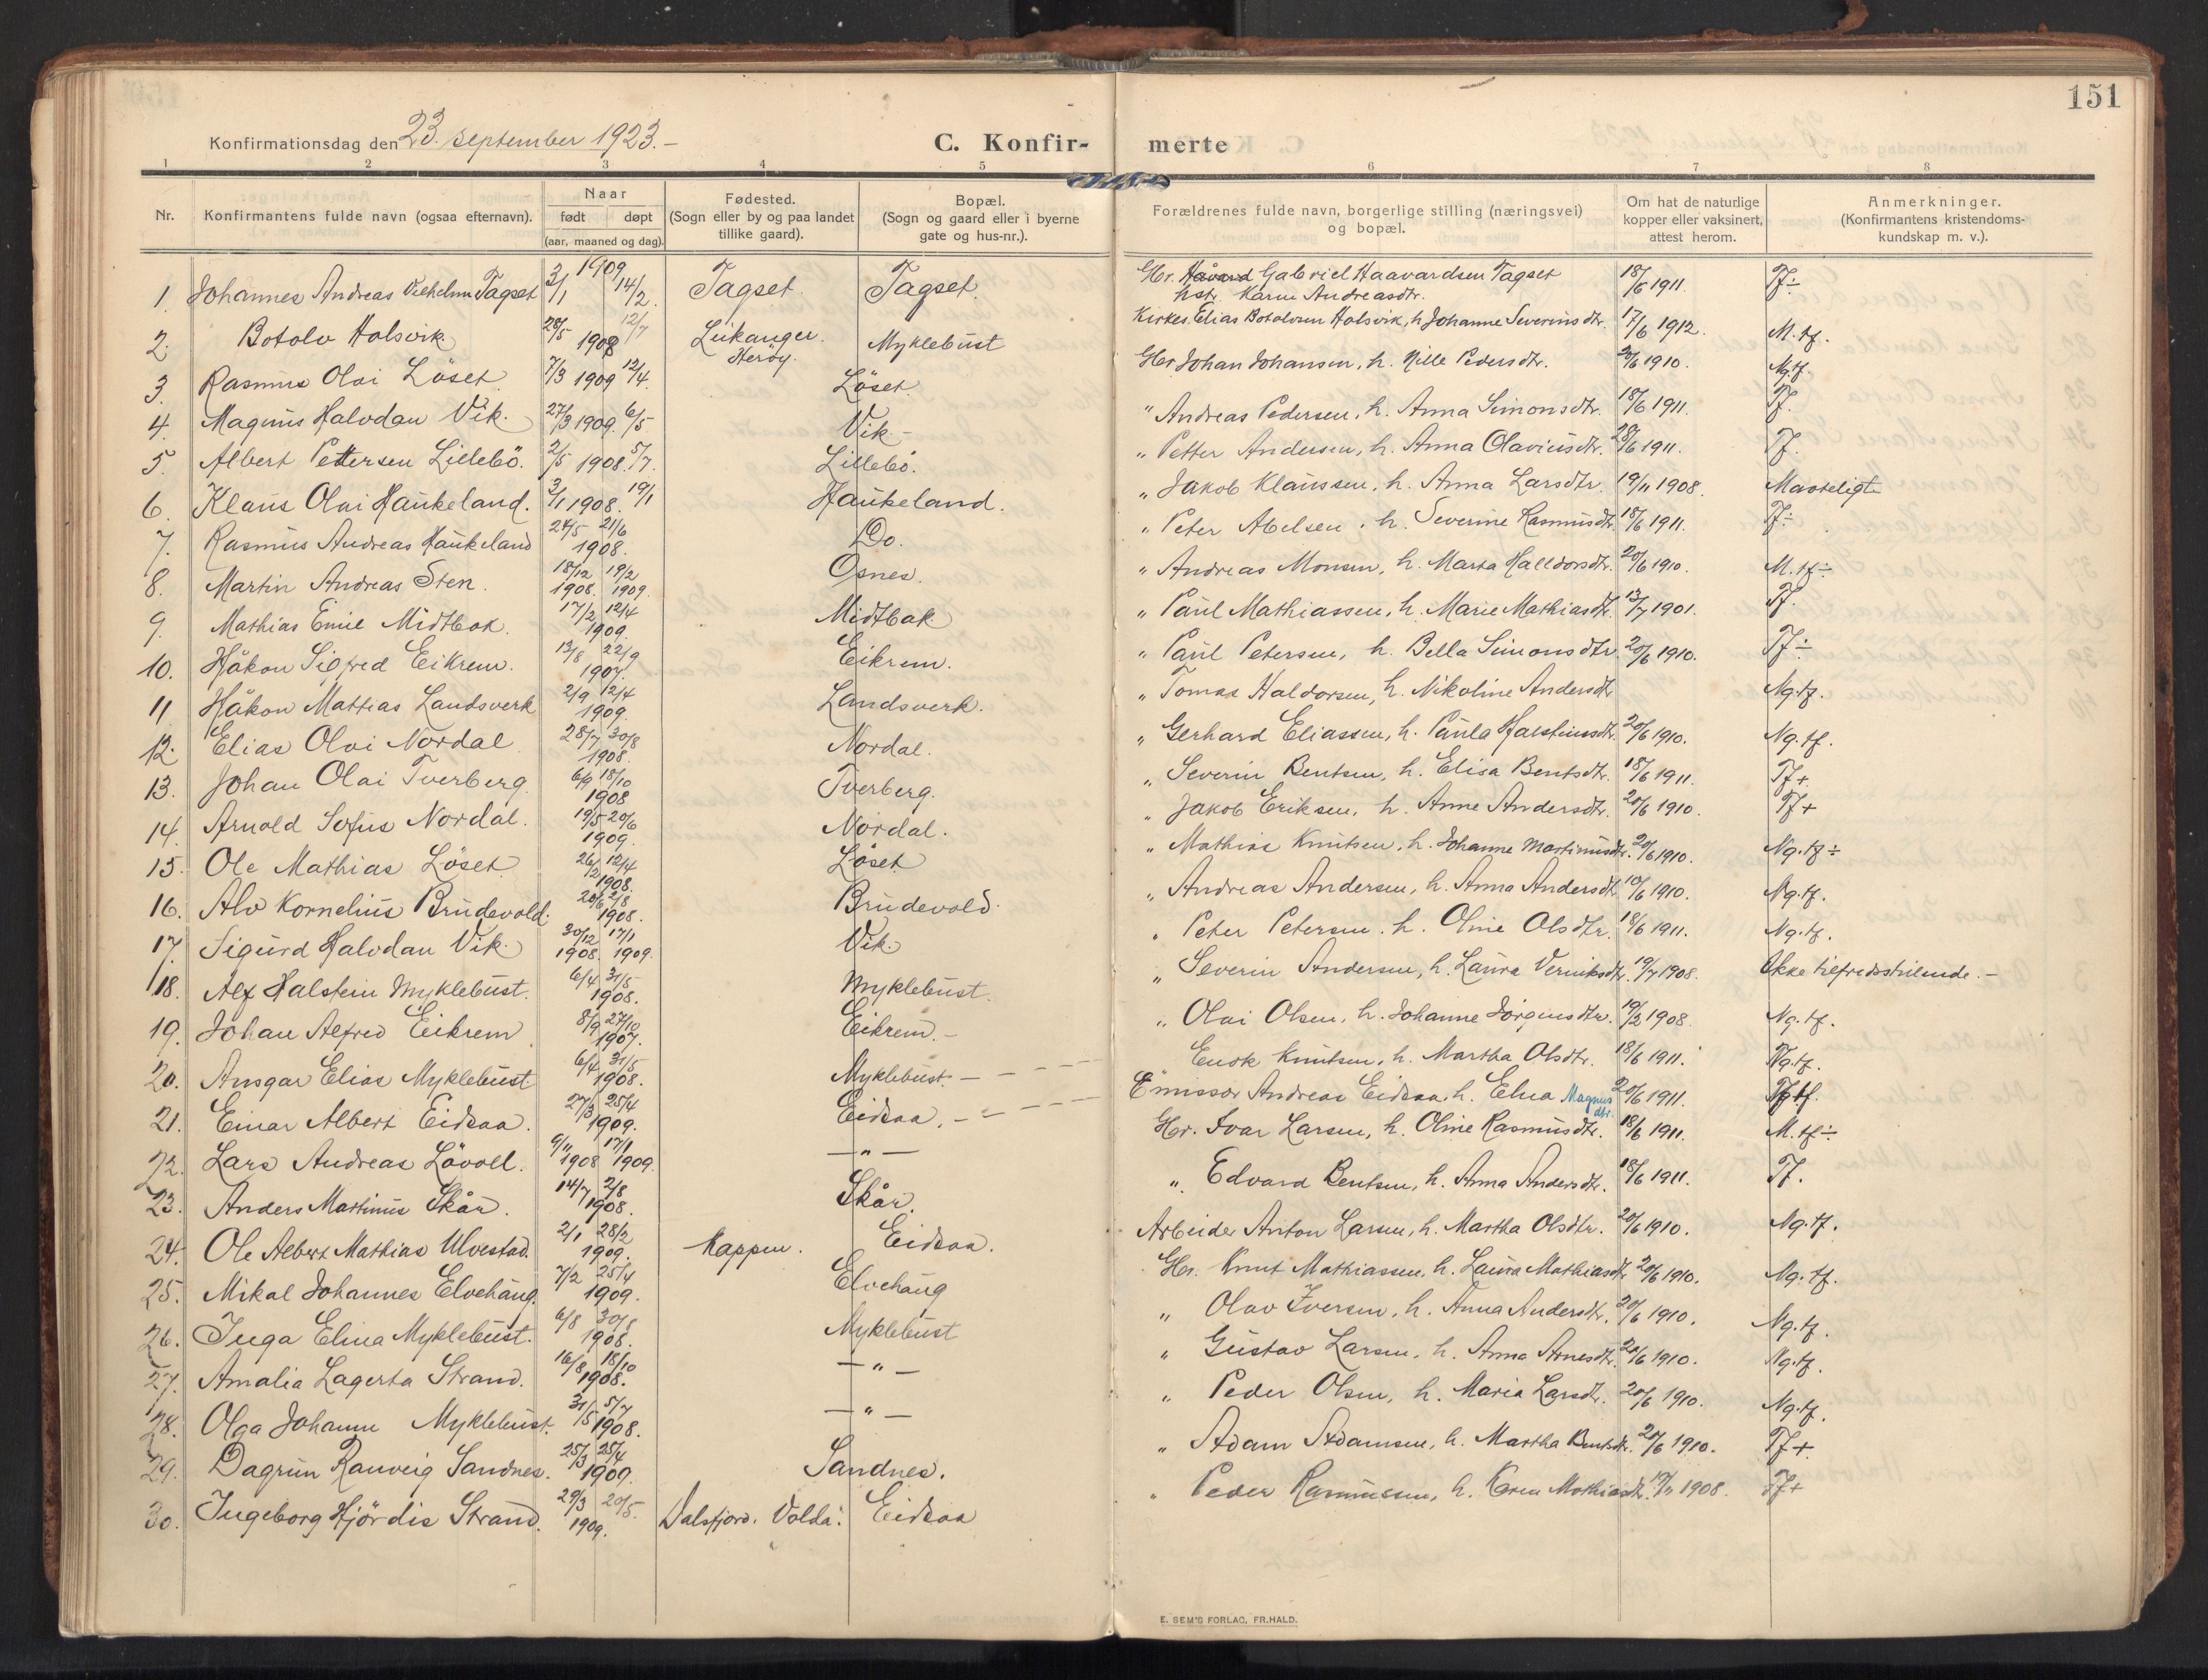 151
Konfirmationsdag den 23. september 1923.-
C. Konfirmerte
1 2 3 4 5 6 7 8
Nr. | Konfirmantens fulde navn (ogsaa efternavn). | Naar født døpt (aar, maaned og dag). | Fødested. (Sogn eller by og paa landet tillike gaard). | Bopæl. (Sogn og gaard eller i byerne gate og hus-nr.). | Forældrenes fulde navn, borgerlige stilling (næringsvei) og bopæl. | Om hat de naturlige kopper eller vaksinert, attest herom. | Anmerkninger. (Konfirmantens kristendomskundskap m. v.).
1. Johannes Andreas Vilhelm Tagset 3/1 1909 14/2 Tagset. Tagset. Gbr. Gabriel Haavardsen Tagset hstr. Karen Andreasdtr. 18/6 1911. Tf÷
2. Botolv Holsvik 28/5 1908 12/7 Leikanger. Herøy. Myklebust Kirkes. Elias Botolvsen Holsvik, h Johanne Severinsdtr. 17/6 1912. M. tf.
3. Rasmus Olai Löset 7/3 1909 12/4. Löset. Gbr Johan Johansen, h. Nille Pedersdtr. 20/6 1910. Ng. tf.
4. Magnus Halvdan Vik. 27/3 1909. 6/5 Vik.- " Andreas Pedersen, h. Anna Simonsdtr. 18/6 1911. Tf.
5. Albert Pettersen Lillebö. 2/5 1908. 5/7. Lillebö. " Petter Andersen, h. Anna Olavinsdtr. 28/6 1911. Tf.
6. Klaus Olai Haukeland. 3/1 1908. 19/1 Haukeland. " Jakob Klaussen, h. Anna Larsdtr. 19/11 1908. Maateligt
7. Rasmus Andreas Haukeland 24/5 21/6 1908. Do. " Peter Abelsen, h. Severine Rasmusdtr. 18/6 1911. Tf÷
8. Martin Andreas Sten. 18/12 1908. 19/2 1909. Osnes. " Andreas Monsen, h. Marta Halldorsdtr. 20/6 1910. M. tf÷
9. Mathias Emil Midtbak. 17/2 12/4 1909. Midtbak " Paul Mathiassen, h. Marie Mathiasdtr. 13/7 1901. Tf.
10. Håkon Sigfred Eikrem. 13/8 22/9 1907. Eikrem. " Paul Petersen, h. Bella Simonsdtr. 20/6 1910. Tf÷
11 Håkon Mattias Landsverk 2/9 12/4 1909. Landsverk. " Tomas Haldorsen, h. Nikoline Andersdtr Ng. tf.
12. Elias Olai Nordal 28/7 30/8 1908. Nordal. " Gerhard Eliassen, h. Paula Halstensdtr. 20/6 1910. Ng. tf.
13. Johan Olai Tverberg. 6/9 18/10 1908 Tverberg. " Severin Bentsen, h. Elisa Bentsdtr. 18/6 1911. Tf+
14. Arnold Sofus Nordal. 19/5 20/6 1909. Nordal. " Jakob Eriksen, h. Anne Andersdtr. 20/6 1910. Tf+
15. Ole Mathias Löset 26/2 12/4 1908. Löset " Mathias Knutsen, h. Johanne Martinusdtr. 20/6 1910. Ng. tf÷
16. Alv Kornelius Brudevold. 20/6 2/8 1908. Brudevold. " Andreas Andersen, h. Anna Andersdtr. 10/6 1910. Ng. tf.
17. Sigurd Halvdan Vik. 30/12 1908. 17/1 1909. Vik. " Peter Petersen. h. Oline Olsdtr. 18/6 1911. Ng. tf.
18. Alf Halstein Myklebust. 6/4 31/5 1908. Myklebust. " Severin Andersen, h. Laura Verniksdtr. 19/7 1908. Ikke tilfredsstilende.-
19. Johan Alfred Eikrem 8/9 27/10 1907. Eikrem.- " Olai Olsen, h. Johanne Jörgensdtr. 19/2 1908. Ng. tf.
20. Ansgar Elias Myklebust. 6/4 31/5 1908. Myklebust.- Enok Knutsen, h. Martha Olsdtr. 18/6 1911. Ng. tf.
21. Einar Albert Eidsaa. 27/3 25/4 1909. Eidsaa.- Emissær Andreas Eidsaa, h. Elna Magnusdtr. 20/6 1911. tf.
22. Lars Andreas Lövoll. 9/11 1908 17/1 1909. - " - Gbr. Ivar Larsen, h. Oline Rasmusdtr. 18/6 1911. M. tf÷
23. Anders Martinus Skår. 14/7 2/8 1908. Skår. " Edvard Bentsen, h. Anna Andersdtr. 18/6 1911. Tf.
24. Ole Albert Mathias Ulvestad. 2/1 28/2 1909. Kappen. Eidsaa. Arbeider Anton Larsen, h. Martha Olsdtr. 20/6 1910. Ng. tf.
25. Mikal Johannes Elvehaug. 7/2 25/4 1909. Elvehaug Gbr. Knut Mathiassen, h. Laura Mathiasdtr. 20/6 1910. Ng. tf.
26. Inga Elina Myklebust. 6/8 30/8 1908. Myklebust " Olav Iversen, h. Anna Andersdtr. 20/6 1910. Ng. tf.
27. Amalia Lagerta Strand. 16/8 18/10 1908. - " - " Gustav Larsen, h. Anna Arnesdtr. 20/6 1910. Ng. tf.
28. Olga Johanne Myklebust. 31/5 5/7 1908. - " - " Peder Olsen, h. Maria Larsdtr. 20/6 1910. Ng. tf.
29. Dagrun Ranveig Sandnes. 25/3 25/4 1909. Sandnes. " Adam Adamsen, h. Martha Bentsdtr. 20/6 1910. Tf+
30. Ingeborg Hjördis Strand. 29/3 20/5. 1909. Dalsfjord. Volda. Eidsaa " Peder Rasmussen, h. Karen Mathiasdtr. 1908. Tf+
E. SEM'S FORLAG, FR.HALD.